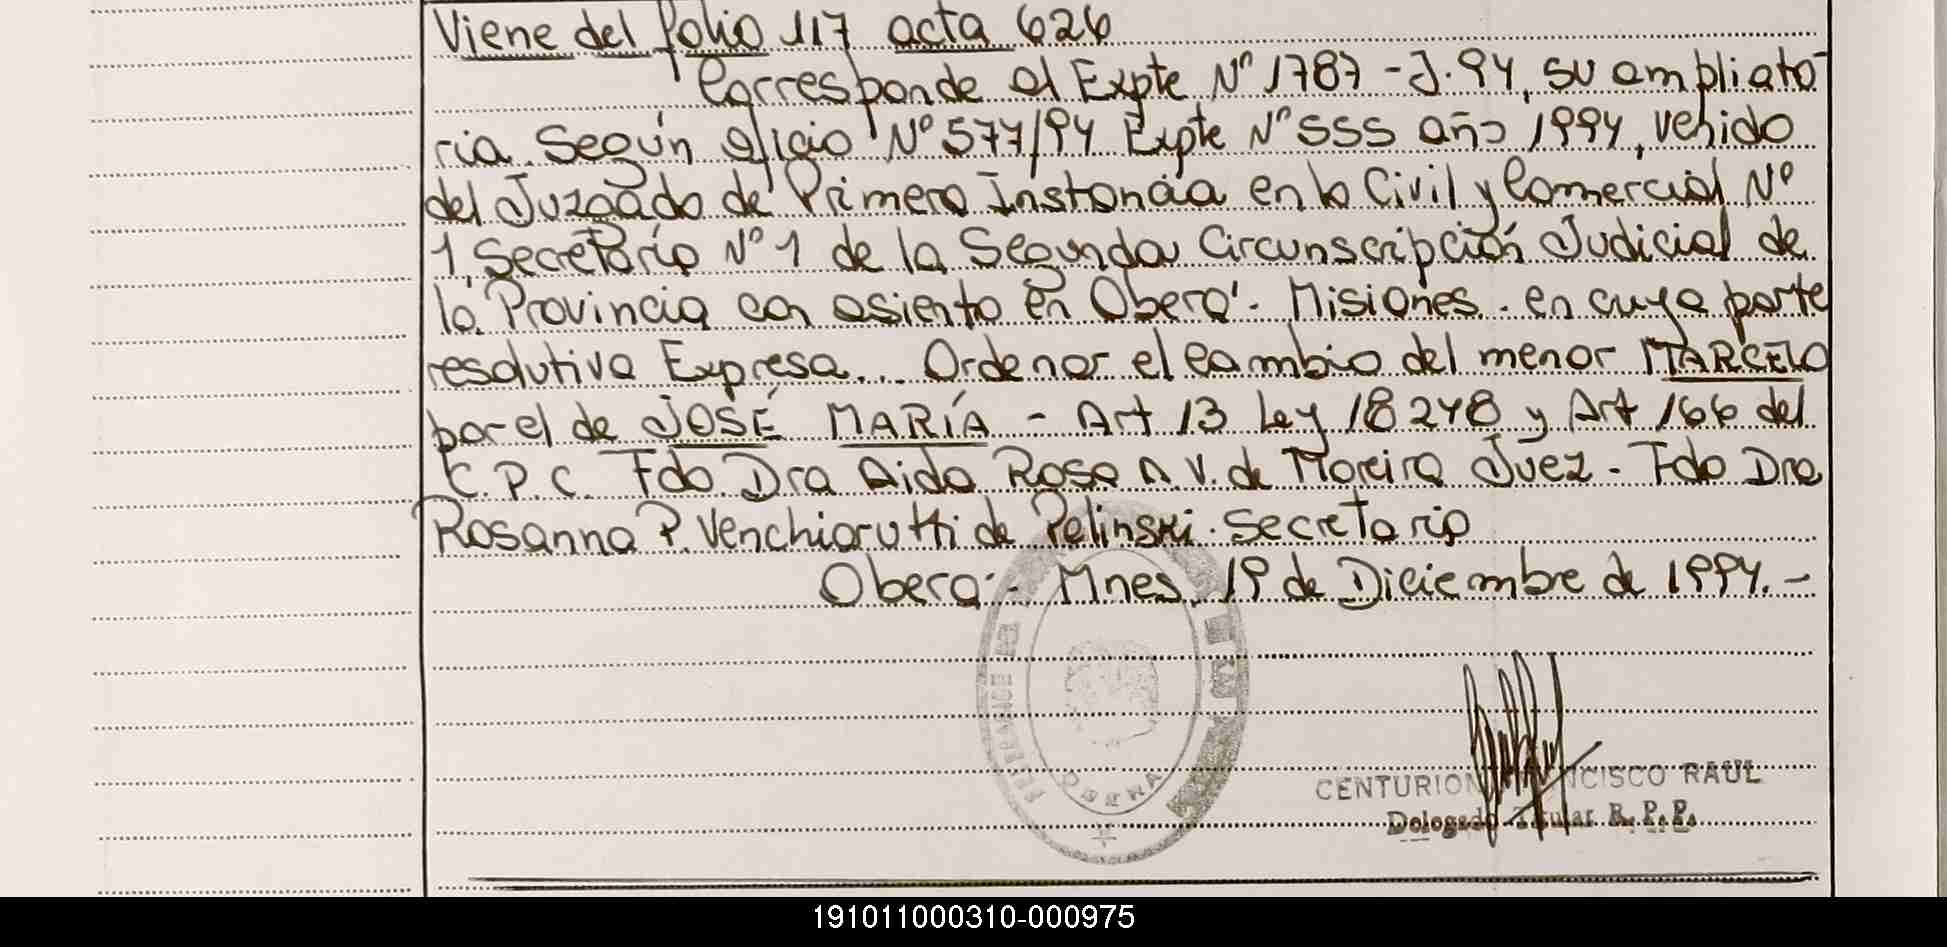 Viene del folio 117 acta 626
Corresponde al Expte Nº 1787 - J. 94, su ampliato-
ria. Según oficio Nº 577/94 Expte Nº 555 año 1994, venido
del Juzgado de Primera Instancia en lo Civil y Comercial Nº
1, Secretaría Nº 1 de la Segunda Circunscripción Judicial de
la Provincia con asiento en Oberá - Misiones. en cuya parte
resolutiva Expresa... Ordenar el cambio del menor MARCELO
por el de JOSÉ MARÍA - Art 13 Ley 18248 y Art 166 del
C.P.C. Fdo Dra Aida Rosa A. V. de Moreira Juez - Fdo Dra
Rosanna P. Venchiarutti de Pelinski. Secretaria
Oberá - Mnes, 19 de Diciembre de 1994. -
OBERA
CENTURION FRANCISCO RAUL
Delegado Titular R. P. P.
191011000310-000975